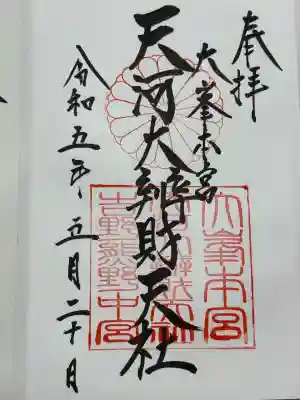 奉拝
大峯本宮
天河大辨財天社
令和五年五月二十日
大峯本宮
吉野熊野中宮